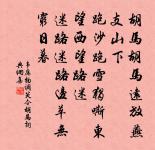 胡馬胡馬遠放燕
支山下
跑沙跑雪獨嘶東
望西望路迷
迷路迷路邊草無
窮日暮
韋應物調笑令胡馬詞